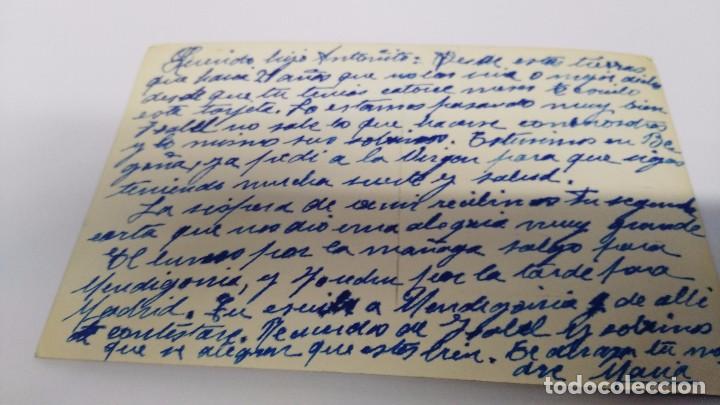 Querido hijo Antoñito: Desde esta tierras
que hacia 21 años que no las veia o mejor dicho
desde que tu tenias catorce meses te envio
esta tarjeta. Lo estamos pasando muy bien
Isabel no sabe lo que hacerse con nosotros
y lo mismo sus sobrinos. Estuvimos en Be
goña, ya pedi a la Virgen para que sigas
teniendo mucha suerte y salud.
La vispera de venir recibimos tu segunda
carta que nos dio una alegria muy grande
El lunes por la mañana salgo para
Mendigorria, y por la tarde para
Madrid. Tu escribe a Mendigorria y de alli
te contestare. Recuerdos de Isabel y sobrinos
que se alegran que estes bien. Te abraza tu ma
dre Maria
todocoleccion.net